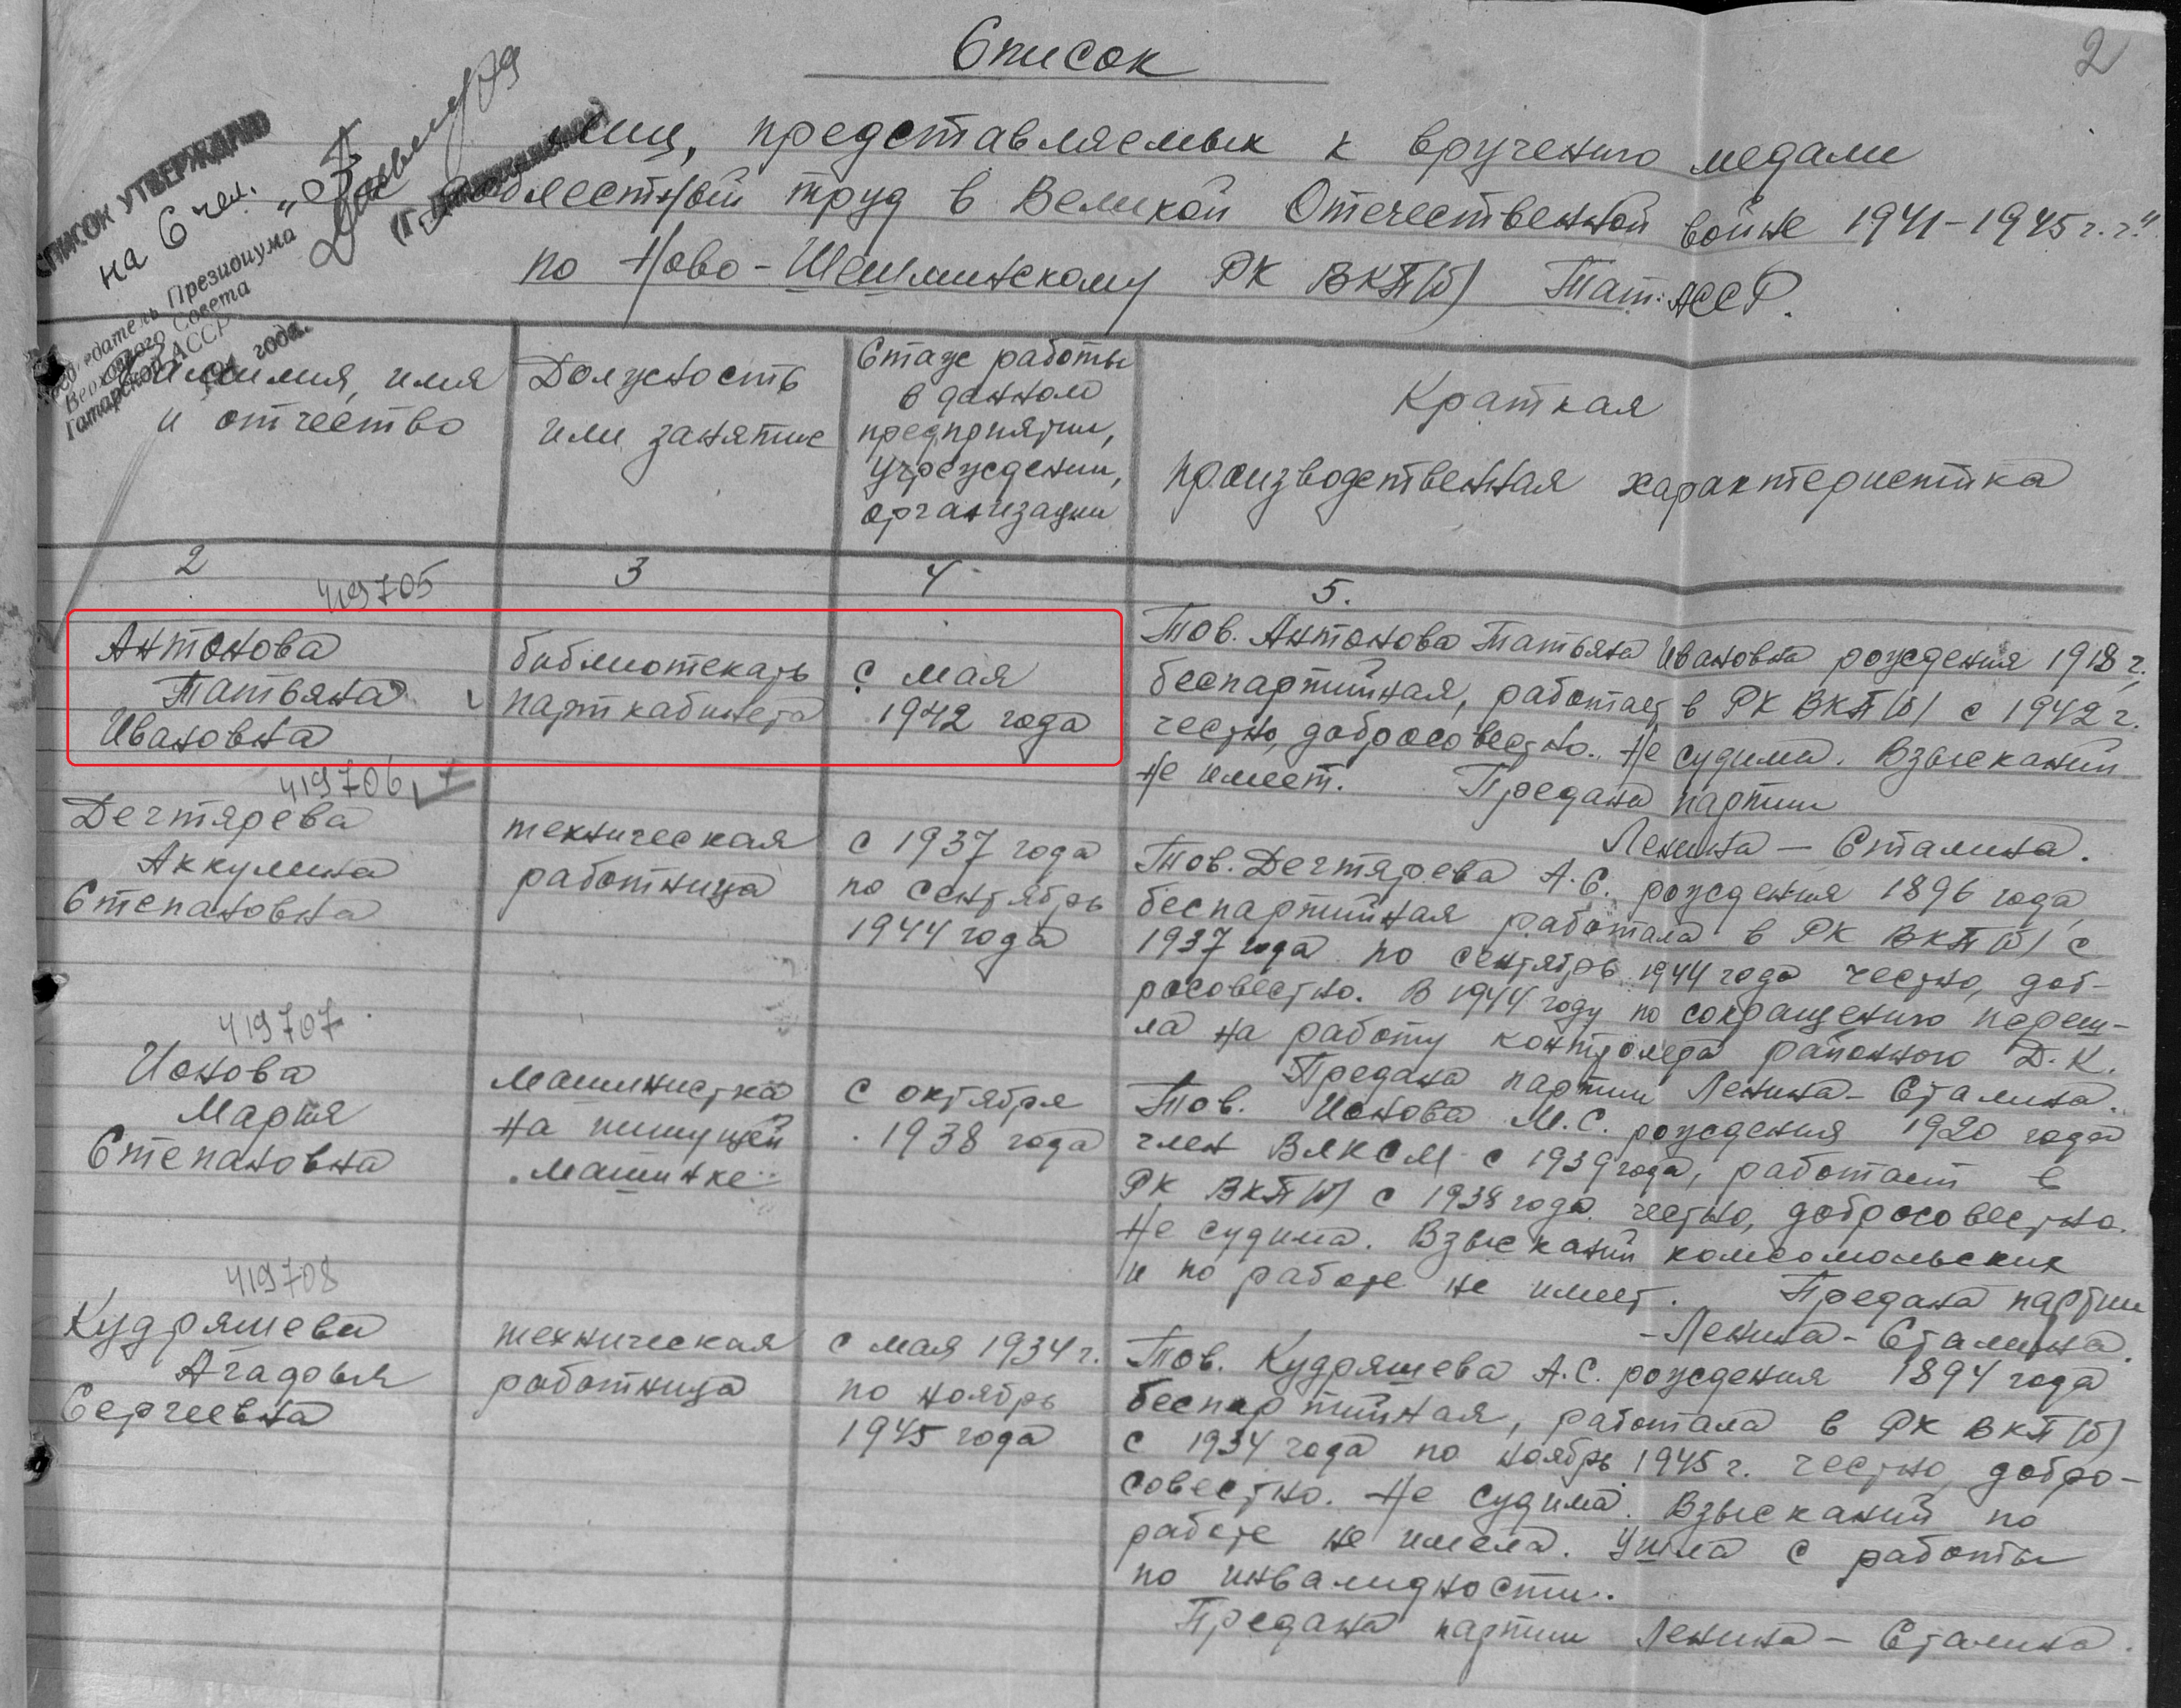 2
Список
лиц, представляемых к вручению медали
„За доблестный труд в Великой Отечественной войне 1941-1945 г.г."
по Ново-Шешминскому РК ВКП(б) Тат.АССР.
СПИСОК УТВЕРЖДАЮ
на 6 чел.
Председатель Президиума
Верховного Совета
Татарской АССР
года.
Фамилия, имя
и отчество
Должность
или занятие
Стаж работы
в данном
предприятии,
учреждении,
организации
Краткая
производственная характеристика
2
3
4
5.
419705
Антонова
Татьяна
Ивановна
библиотекарь
парткабинета
с мая
1942 года
Тов. Антонова Татьяна Ивановна рождения 1918 г.,
беспартийная, работает в РК ВКП(б) с 1942 г.
честно, добросовестно. Не судима. Взысканий
не имеет. Предана партии
Ленина - Сталина.
419706
Дегтярева
Аккулина
Степановна
техническая
работница
с 1937 года
по сентябрь
1944 года
Тов. Дегтярева А.С. рождения 1896 года,
беспартийная работала в РК ВКП(б) с
1937 года по сентябрь 1944 года честно, доб-
росовестно. В 1944 году по сокращению переш-
ла на работу контролера районного Д.К.
Предана партии Ленина-Сталина.
419707
Ионова
Мария
Степановна
машинистка
на пишущей
машинке
с октября
1938 года
Тов. Ионова М.С. рождения 1920 года
член ВЛКСМ с 1939 года, работает в
РК ВКП(б) с 1938 года честно, добросовестно.
Не судима. Взысканий комсомольских
и по работе не имеет. Предана партии
-Ленина-Сталина.
419708
Кудряшева
Агадфья
Сергеевна
техническая
работница
с мая 1934 г.
по ноябрь
1945 года
Тов. Кудряшева А.С. рождения 1894 года
беспартийная, работала в РК ВКП(б)
с 1934 года по ноябрь 1945 г. честно, добро-
совестно. Не судима. Взысканий по
работе не имела. Ушла с работы
по инвалидности.
Предана партии Ленина - Сталина.